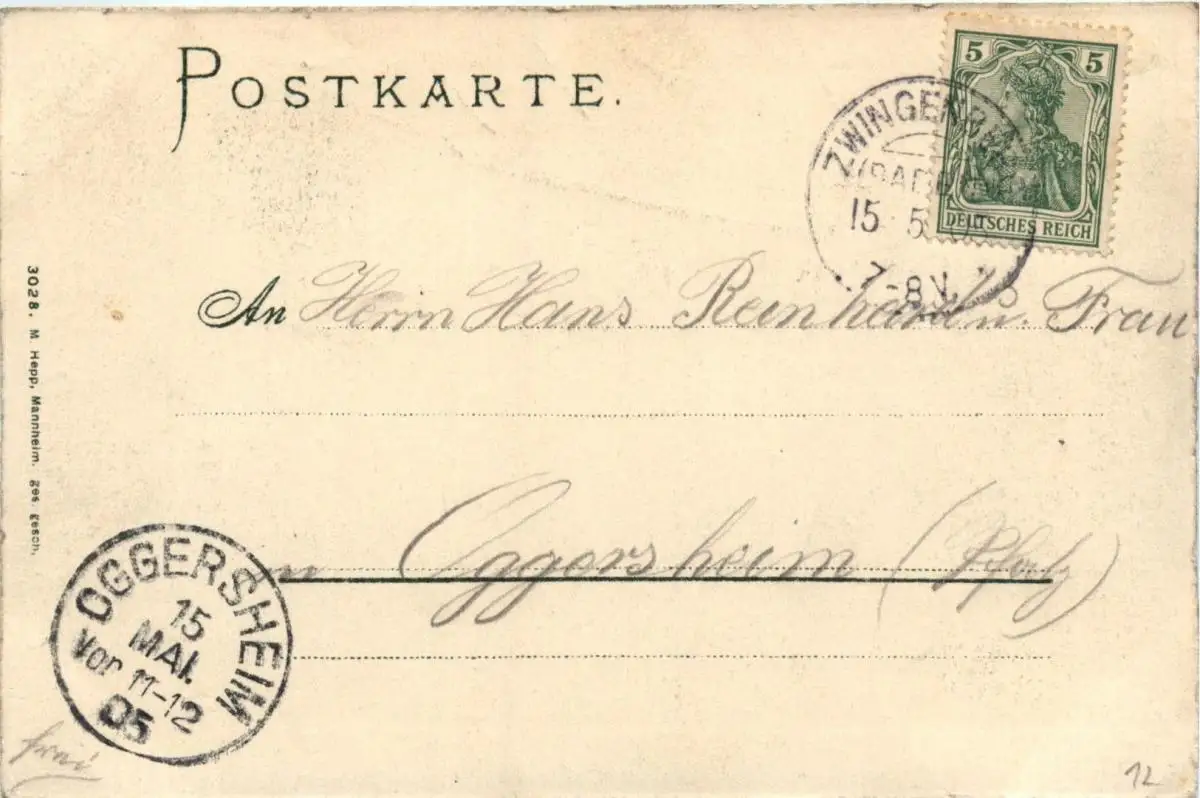 POSTKARTE.
5 5
DEUTSCHES REICH
ZWINGENBERG
(BADEN)
15 5
7-8 V.
An Herrn Hans Reinhard u. Frau
in Oggersheim (Pfalz)
3028. M. Hepp, Mannheim. ges. gesch.
OGGERSHEIM
15
MAI.
Vor 11-12
05
frei
12